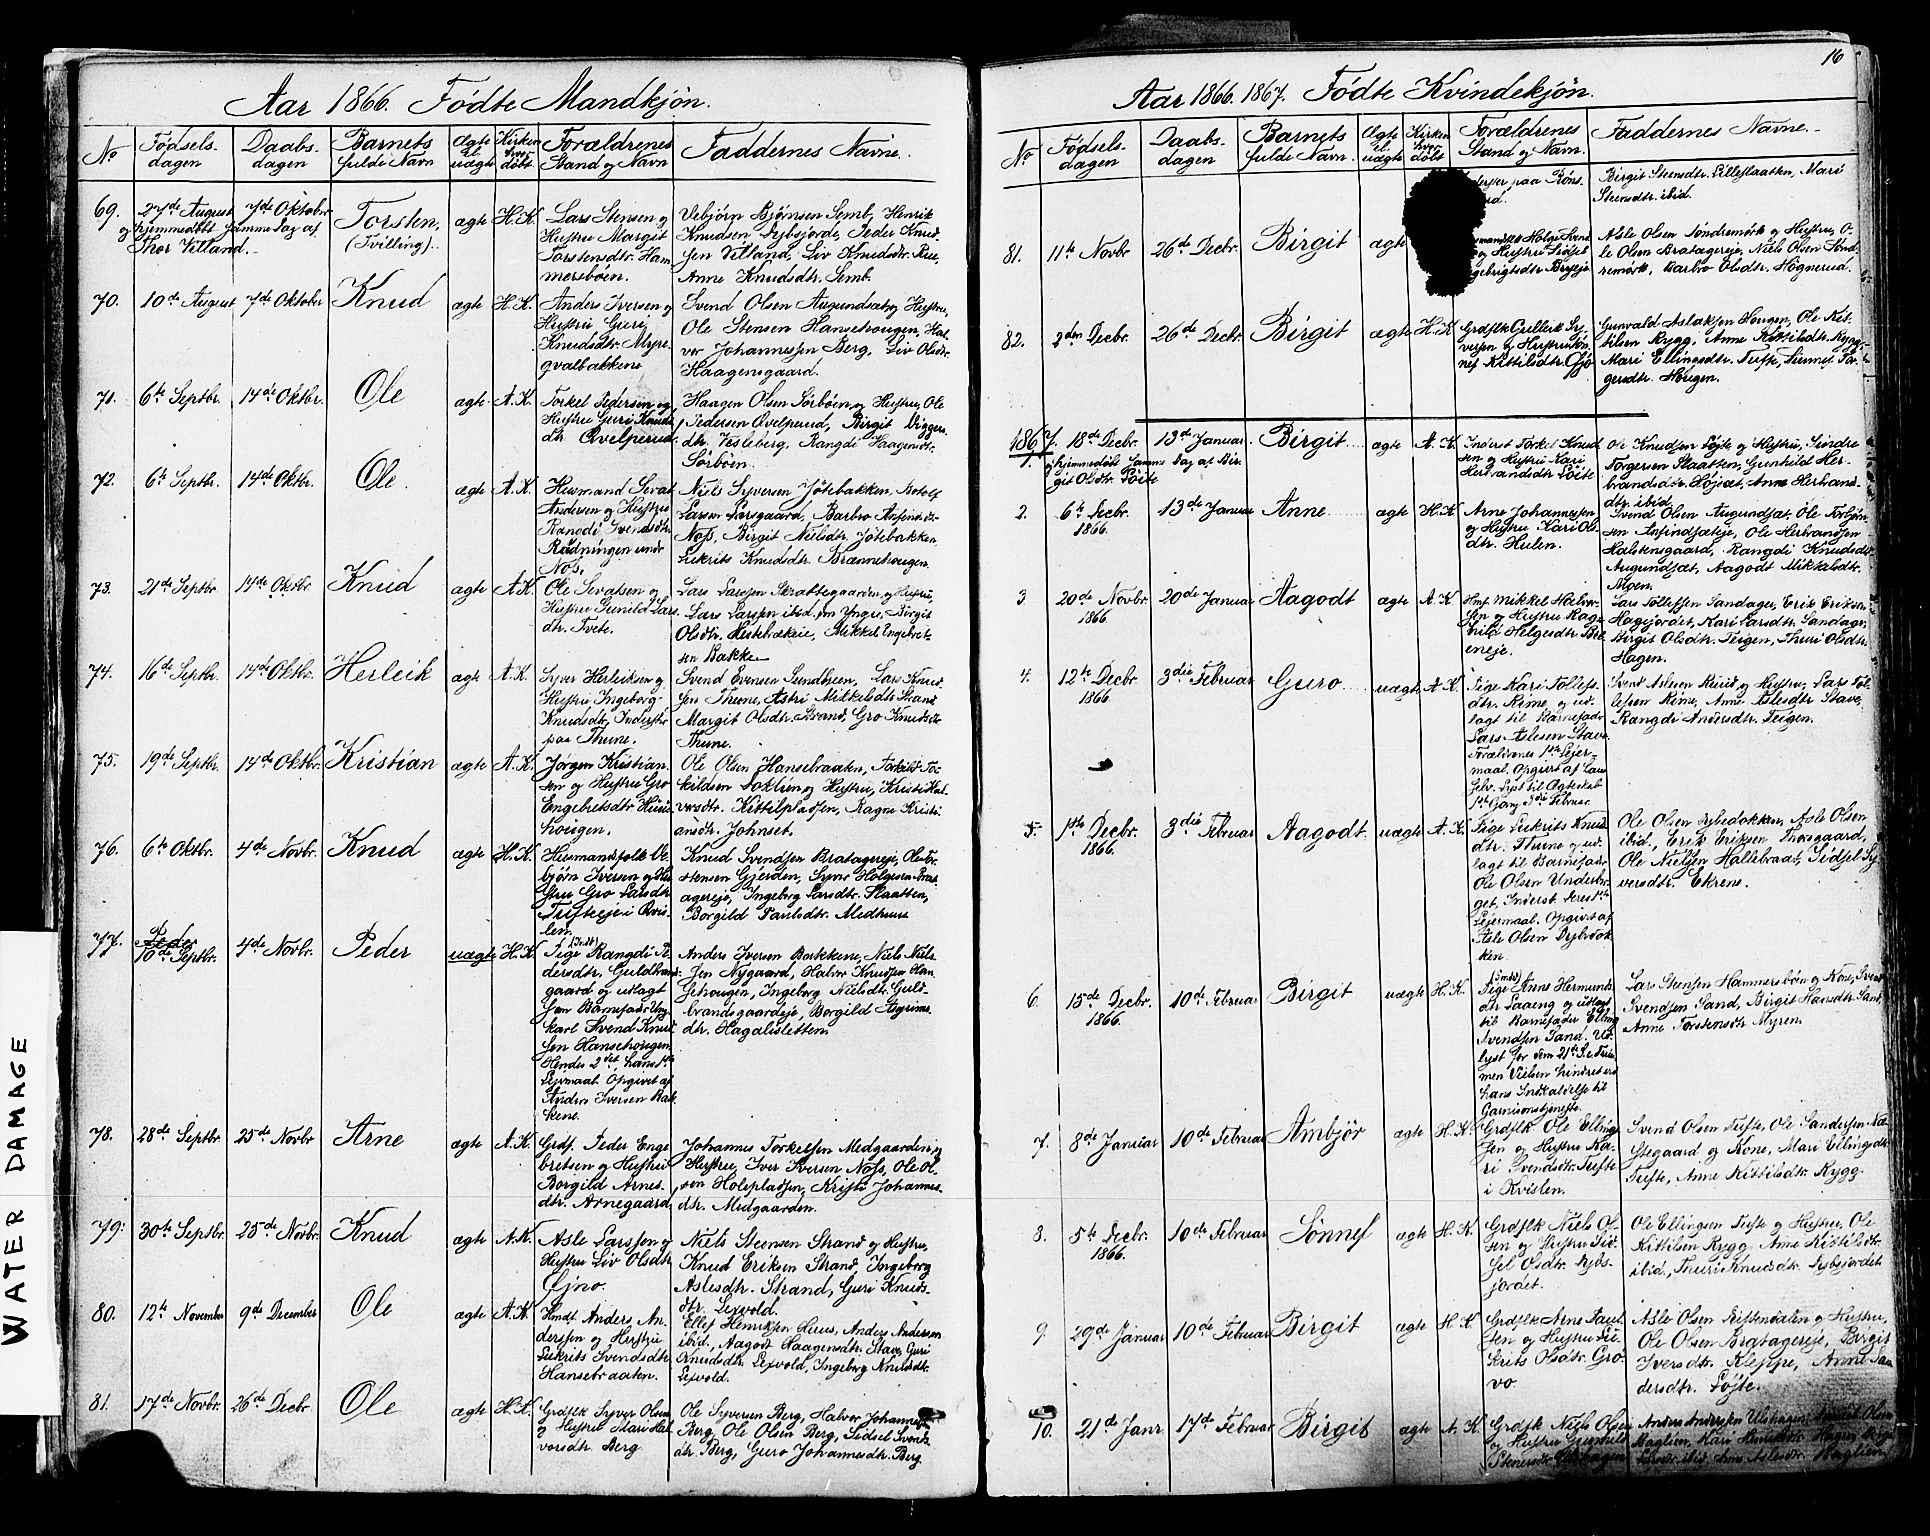 Aar 1866. Fødte Mandkjön.
No
Fødsels-
dagen
Daabs-
dagen
Barnets
fulde Navn
Ægte
el.
uægte
Kirken
hvor
döbt
Forældrenes
Stand og Navn
Faddernes Navne.
69. 27de August 7de Oktober Torsten, ægte H.K.
og hjemmedöbt samme Dag af
Thor Villand.
(Tvilling).
Lars Stensen og
Hustru Margit
Torstensdtr. Ham-
mersböen.
Vebjörn Bjørnsen Semb, Henrik
Knudsen Dybsjorde, Peder Knud
sen Villand, Liv Knudsdtr. Rue,
Anne Knudsdtr. Semb.
70. 10de August 7de Oktober Knud ægte H.K.
Anders Iversen og
Hustru Guri
Knudsdtr. Myre
qvalbakkene
Svend Olsen Augundsæt og Hustru,
Ole Stensen Hansehougen, Hal-
vor Johannessen Berg, Liv Olsdtr.
Haagensgaard.
71. 6te Septbr. 14de Oktbr. Ole ægte A.K.
Torkel Pedersen og
Hustru Guri Knuds
dtr. Qvelprud
Haagen Olsen Sörböen og Hustru, Ole
Pedersen Qvelprud, Birgit Viggers
dtr. Vesleberg, Rangdi Haagensdtr.
Sörböen.
72. 6te Septbr. 14de Oktbr. Ole ægte A.K.
Husmand Sevat
Andersen og Hustru
Rangdi Svendsdtr.
Rudningen under
Nos.
Niels Syversen Jötebakken, Botolf
Larsen Larsgaard, Barbro Arfinsdtr.
Noss, Birgit Nielsdtr. Jötebakken,
Lukrits Knudsdtr. Brænnehougen.
73. 21de Septbr 14de Oktbr. Knud ægte A.K.
Ole Sevatsen og
Hustru Gunild Lars
dtr. Tvete.
Lars Larssen Skrattegaarden og Hustru,
Lars Larssen ibid, den Yngre, Birgit
Olsdtr. Hestebrækeie, Mikkel Engebret-
sen Bakke
74. 16de Septbr. 14de Oktbr. Herleik ægte A.K.
Syver Herleiksen og
Hustru Ingeborg
Knudsdtr. Inderster
paa Thune.
Svend Evensen Sundheen, Lars Knud
sen Thune, Astri Mikkelsdtr. Strand
Margit Olsdtr. Strand, Gro Knudsdtr.
Thune.
75. 19de Septbr. 14de Oktbr. Kristian ægte A.K.
Jørgen Kristian
sen og Hustru Gro
Engebretsdtr. Huus
hougen.
Ole Olsen Hansebraaten, Torkild Tor
kildsen Soklien og Hustru, Kristi Hal
vorsdtr. Kittilpladsen, Ragne Kristi
ansdtr. Johnset.
76. 6te Oktbr. 4de Novbr. Knud ægte H.K.
Husmandsfolk Ve
bjørn Iversen og Hu
stru Gro Larsdtr.
Tufteeje i Qvis
len.
Knud Svendsen Bratagereje, Ole Tor
stensen Gjerden, Syver Holgersen Brat
agereje, Ingeborg Larsdtr. Slaatten,
Borgild Paulsdtr. Medhuus
77. Peder
10de Septbr. 4de Novbr. Peder uægte H.K.
Pige (Indst) Rangdi Pe
dersdtr. Guldbrands
gaard og udlagt
som Barnefader Ung
karl Svend Knud
sen Hansehougen.
Hendes 2det hans 1ste
Lejermaal. Opgivet af
Anders Iversen Bak
kene.
Anders Iversen Bakkene, Niels Niels
sen Nygaard, Halvor Knudsen Han
sehougen, Ingeborg Nielsdtr. Guld-
brandsgaardeje, Borgild Asgrims
dtr. Hagaliesletten
78. 28de Septbr 25de Novbr Arne ægte A.K.
Grdf. Peder Enge
bretsen og Hustru
Borgild Arnes
dtr. Arnegaard
Johannes Torkelsen Medgaarden og
Hustru, Iver Iversen Noss, Ole Ol
sen Holepladsen, Kristi Johannes
dtr. Medgaarden.
79. 30te Septbr. 25de Novbr. Knud ægte A.K.
Asle Larssen og
Hustru Liv Olsdtr.
Ojno.
Niels Steensen Strand og Hustru,
Knud Eriksen Strand, Ingeborg
Aslesdtr. Strand, Guri Knuds-
dtr. Lexvold.
80. 12te November 9de December Ole ægte A.K.
Hmdf. Anders An
dersen og Hustru
Lukrits Svendsdtr.
Hansebraaten.
Ellef Henriksen Huus, Anders Andersen
ibid., Aagodt Haagensdtr. Stave, Guri
Knudsdtr. Lexvold, Ingeborg Knudsdtr.
Lexvold.
81. 17de Novbr. 26de Decbr. Ole ægte H.K.
Grdfolk Syver Olsen
og Hustru Mari Hal
vorsdtr. Berg
Ole Syversen Berg, Halvor Johannessen
Berg, Ole Olsen Berg, Sidsel Svends
dtr. Berg, Guro Johannesdtr. Berg
16
Aar 1866. 1867. Födte Kvindekjön.
No
Fødsels-
dagen
Daabs-
dagen
Barnets
fulde Navn.
Ægte
el.
uægte
Kirken
hvor
döbt
Forældrenes
Stand og Navn.
Faddernes Navne.
derster paa Röns-
rud.
Birgit Steensdtr. Lilleslaatten, Mari
Steensdtr. ibid.
81. 11te Novbr 26de Decbr. Birgit ægte
Holger Svend
og Hustru Sidsel
gebrigtsdtr. Bryeje
Asle Olsen Söndremörk og Hustru, O-
le Olsen Bratagereje, Niels Olsen Sönd
remörk, Barbro Olsdtr. Högnerud.
82. 2den Decbr. 26de Decbr. Birgit ægte H.K.
Grdflk Gullerik Sy-
versen og Hustru Sön-
nef Kittilsdtr. Gjö
Gunvald Aslaksen Hougen, Ole Kit-
tilsen Rygg, Anne Kittilsdtr. Rygg,
Mari Ellingsdtr. Tufte, Sünnef Tor
gersdtr. Hougen.
1867.
1. 18de Decbr. 13de Januar Birgit ægte A.K.
og hjemmedöbt samme Dag af Bir-
git Olsdtr. Löite
Inderst Torkel Knud
sen og Hustru Kari
Herbrandsdtr. Löite
Ole Knudsen Löjte og Hustru, Sindre
Torgersen Slaatten, Gunhild Her-
brandsdtr. Höjset, Anne Herbrands-
dtr. ibid.
2. 6te Decbr.
1866. 13de Januar Anne ægte H.K.
Arne Johannessen
og Hustru Kari Ols
dtr. Hulen.
Svend Olsen Augundsæt, Ole Torbjörn
sen Arfindsæteje, Ole Herbrandsen
Halstensgaard, Rangdi Knudsdtr.
Augundsæt, Aagodt Mikkelsdtr.
Moen.
3. 20de Novbr
1866. 20de Januar Aagodt ægte A.K.
Hmf. Mikkel Halvor
sen og Hustru Rag
hild Helgesdtr. Bre
neeje.
Lars Tollefsen Sandager, Erik Eriksen
Hagejordet, Kari Larsdtr. Sandager,
Birgit Olsdtr. Teigen, Thuri Olsdtr.
Hagen.
4. 12te Decbr.
1866. 3die Februar Guro uægte A.K.
Pige Kari Tollefs
dtr. Rime og ud-
lagt til Barnefader
Lars Aslesen Stave
Forældrenes 1ste Lejer-
maal. Opgivet af Lars
selv. Lyst til Ægteskab
1ste Gang 3die Februar.
Svend Aslesen Ruud og Hustru, Lars Tol
lefsen Rime, Anne Aslesdtr. Stave,
Rangdi Andersdtr. Teigen.
5. 1ste Decbr.
1866. 3die Februar Aagodt uægte A.K.
Pige Lukrits Knuds
dtr. Thune og ud
lagt til Barnefader
Ole Olsen Underber
get, Inderst. Deres 1ste
Lejermaal. Opgivet af
Asle Olsen Dybedok
ken.
Ole Olsen Dybedokken, Asle Olsen
ibid., Erik Eriksen Thorsgaard,
Ole Nielsen Haltebraat, Sidsel Sy
versdtr. Ekrene.
6. 15de Decbr.
1866. 10de Februar Birgit uægte H.K.
(Indst)
Pige Anne Hermunds
dtr. Leaeng og udlagt
til Barnefader Elling
Svendsen Sand. Ud
lyst for dem 21de
men Vielsen hindret ved
hans Indkaldelse til
Garnisonstjeneste.
Lars Stensen Hammersböen og Kone, Svend
Svendsen Sand, Birgit Hansdtr. Sand,
Anne Torstensdtr. Myren.
7. 8de Januar 10de Februar Ambjør ægte H.K.
Grdflk Ole Elling
sen og Hustru Ka-
ri Svendsdtr. Tufte
i Kvislen.
Svend Olsen Tufte, Ole Sandersen Næ
stegaard og Kone, Mari Ellingsdtr.
Tufte, Anne Kittilsdtr. Rygg.
8. 5te Decbr.
1866. 10de Februar Sønnef ægte H.K.
Grdflk Niels Ol-
sen og Hustru Sid-
sel Olsdtr. Dybs-
jordet.
Ole Ellingsen Tufte og Hustru, Ole
Kittilsen Rygg, Anne Kittilsdtr.
ibid., Thuri Knudsdtr. Dybsjordet
9. 29de Januar 10de Februar Birgit ægte H.K.
Grdflk Arne Paul
sen og Hustru Lu-
krits Olsdtr. Gro-
vo.
Asle Olsen Liftendalen og Hustru,
Ole Olsen Bratagereje, Birgit
Iversdtr. Kleppe, Anne San
dersdtr. Löjte.
10. 21de Janr 17de Februar Birgit ægte A.K.
Grdflk Niels Olsen
og Hustru Gunhild
Stenersdtr. Ulshagen
Anders Andersen Ulshagen, Olsen
Baglien, Kari Henriksdtr. Hagen, Birgit
Larsdtr. ibid, Anne Aslesdtr. Baglien
WATER DAMAGE